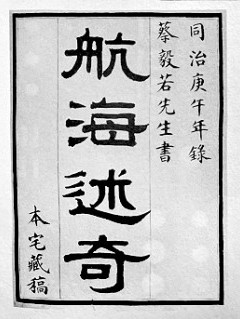 同治庚午年錄
蔡毅若先生書
航海述奇
本宅藏稿